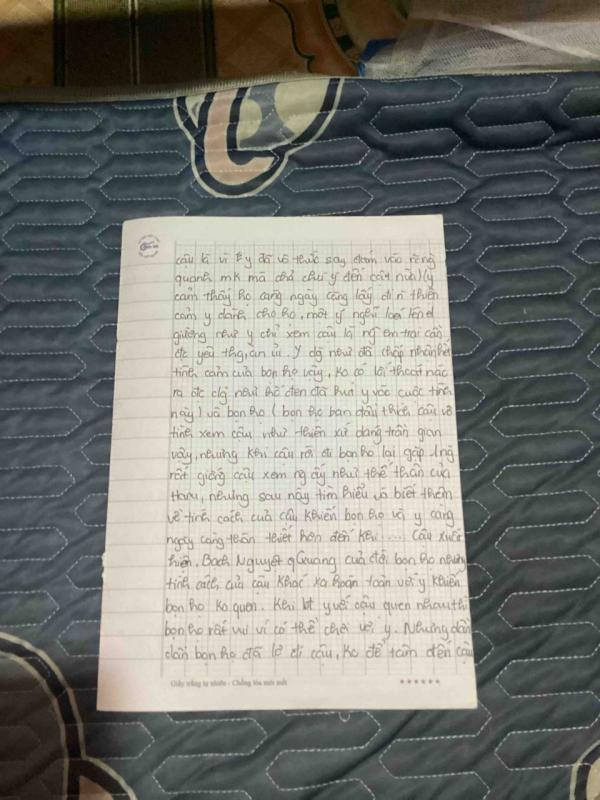 cậu là vì y đã vô thức say đắm vào riêng
quanh mk mà chả chú ý đến cậu nữa) (y
cảm thấy họ càng ngày càng lấy đi n thiện
cảm y dành cho họ, một ý nghĩ loé lên đ
giường như y chỉ xem cậu là ng em trai cần
đc yêu thg, an ủi. Y dg như đã chấp nhận hết
tình cảm của bọn họ vậy, ko có lối thoát nào
ra đc cg như thế đen đã hút y vào cuộc tình
này) và bọn họ (bọn họ ban đầu thích cậu vô
tình xem cậu như thiên xứ dáng trần gian
vậy, nhưng khi cậu rời đi bọn họ lại gặp 1 ng
rất giống cậu xem ng ấy như thế thân của
, nhưng sau này tìm hiểu và biết thêm
về tính cách của cậu khiến bọn họ và y càng
ngày càng thân thiết hơn đến khi .... Cậu xuất
hiện, Bạch Nguyệt Quang của đời bọn họ nhưng
tính cách của cậu khác xa hoàn toàn với y khiến
bọn họ ko quen. Khi bt y với cậu quen nhau thì
bọn họ rất vui vì có thể chơi với y. Nhưng dần
dần bọn họ đã lơ đi cậu, ko để tâm đến cậu
Giấy trắng tự nhiên - Chống lóa mỏi mắt